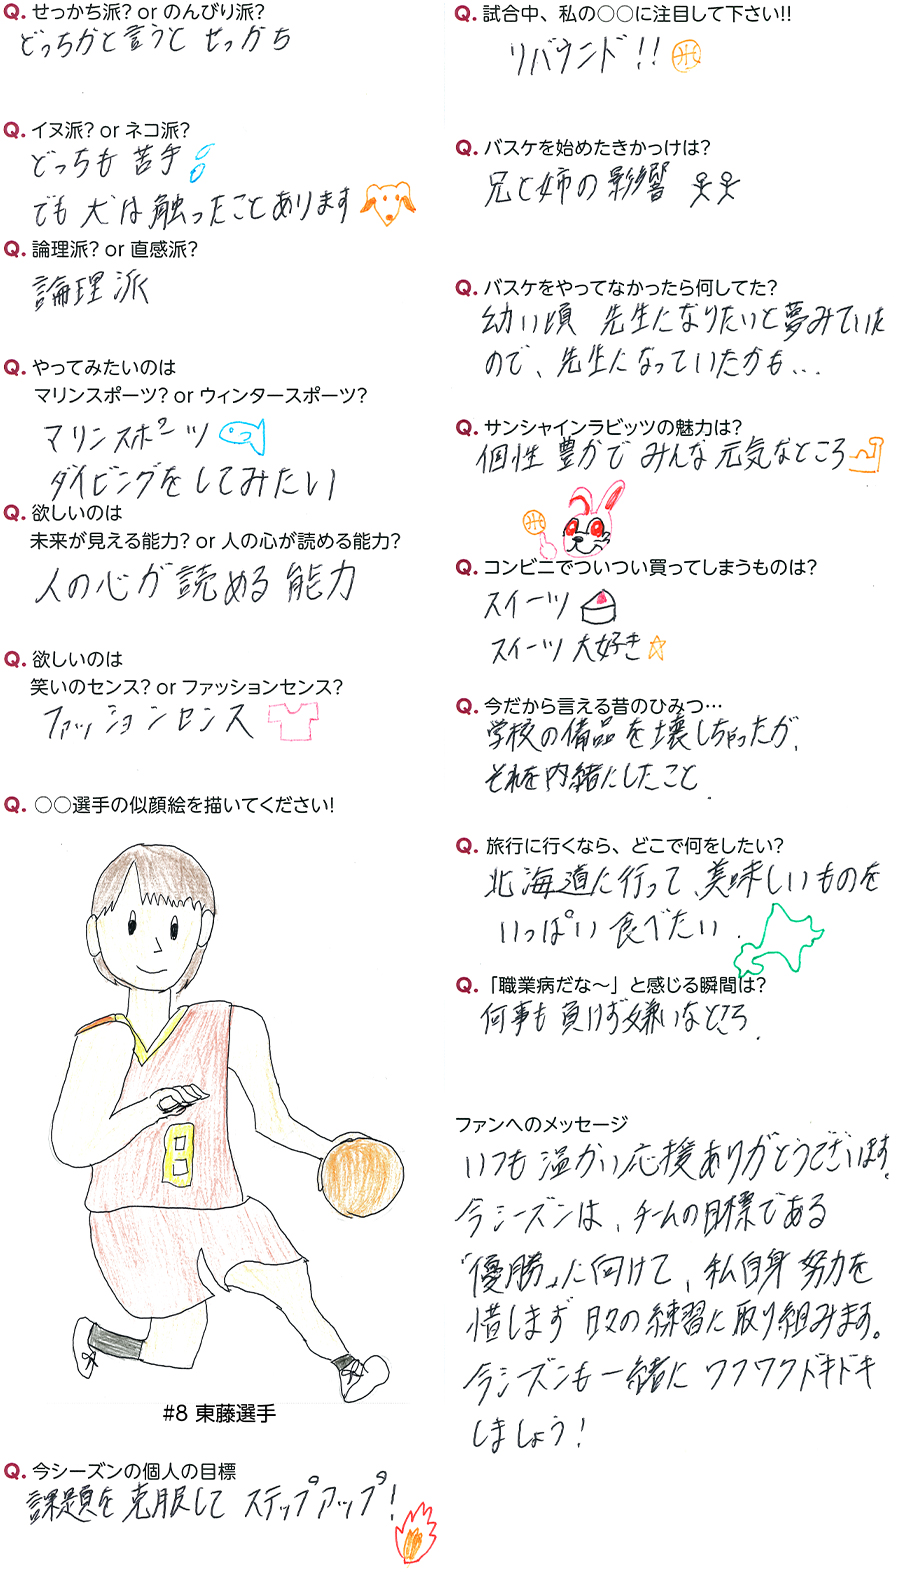 Q. せっかち派? or のんびり派?
どっちかと言うと せっかち
Q. イヌ派? or ネコ派?
どっちも 苦手
でも 犬は 触ったことあります
Q. 論理派? or 直感派?
論理派
Q. やってみたいのは
マリンスポーツ? or ウィンタースポーツ?
マリンスポーツ
ダイビングをしてみたい
Q. 欲しいのは
未来が見える能力? or 人の心が読める能力?
人の心が 読める 能力
Q. 欲しいのは
笑いのセンス? or ファッションセンス?
ファッションセンス
Q. ○○選手の似顔絵を描いてください!
8
#8 東藤選手
Q. 今シーズンの個人の目標
課題を 克服して ステップアップ!
Q. 試合中、私の○○に注目して下さい!!
リバウンド!!
Q. バスケを始めたきかっけは?
兄と姉の影響
Q. バスケをやってなかったら何してた?
幼い頃 先生になりたいと夢みていた
ので、先生になっていたかも...
Q. サンシャインラビッツの魅力は?
個性 豊かで みんな 元気なところ
Q. コンビニでついつい買ってしまうものは?
スイーツ
スイーツ 大好き
Q. 今だから言える昔のひみつ…
学校の備品を壊しちゃったが、
それを内緒にしたこと.
Q. 旅行に行くなら、どこで何をしたい?
北海道に行って、美味しいものを
いっぱい 食べたい.
Q. 「職業病だな～」と感じる瞬間は?
何事も 負けず嫌いなところ.
ファンへのメッセージ
いつも 温かい応援ありがとうございます。
今シーズンは、チームの目標である
「優勝」に向けて、私自身 努力を
惜しまず 日々の練習に取り組みます。
今シーズンも一緒に ワクワクドキドキ
しましょう!